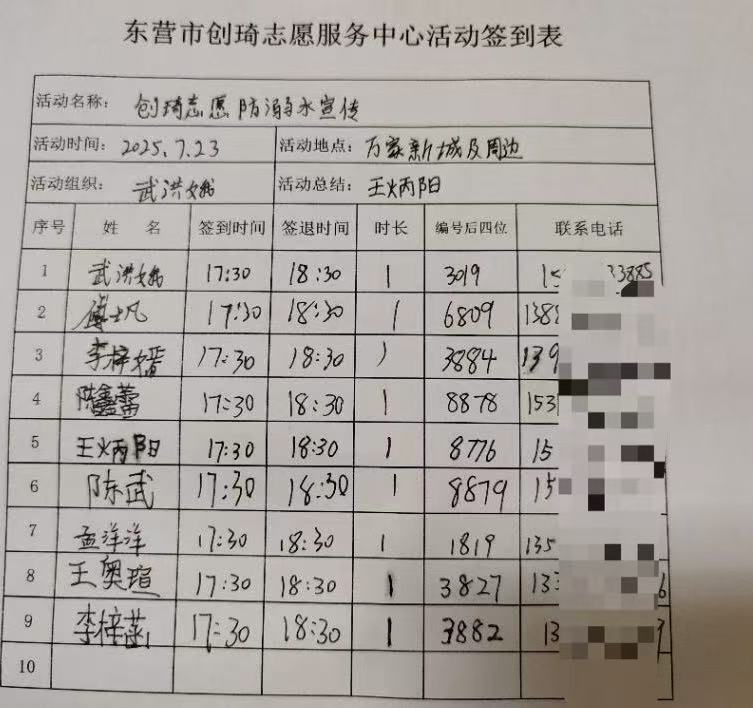 东营市创琦志愿服务中心活动签到表
活动名称： 创琦志愿防溺水宣传
活动时间： 2025.7.23 活动地点： 万家新城及周边
活动组织： 武洪娥 活动总结： 王炳阳
序号 姓 名 签到时间 签退时间 时长 编号后四位 联系电话
1 武洪娥 17:30 18:30 1 3019 15 33885
2 17:30 18:30 1 6809 138
3 李梓嫣 17:30 18:30 1 3884 139
4 陈鑫蕾 17:30 18:30 1 8878 153
5 王炳阳 17:30 18:30 1 8776 15
6 陈武 17:30 18:30 1 8879 15
7 孟洋洋 17:30 18:30 1 1819 135
8 王奥瑄 17:30 18:30 1 3827 13 6
9 李梓菡 17:30 18:30 1 3882 13
10